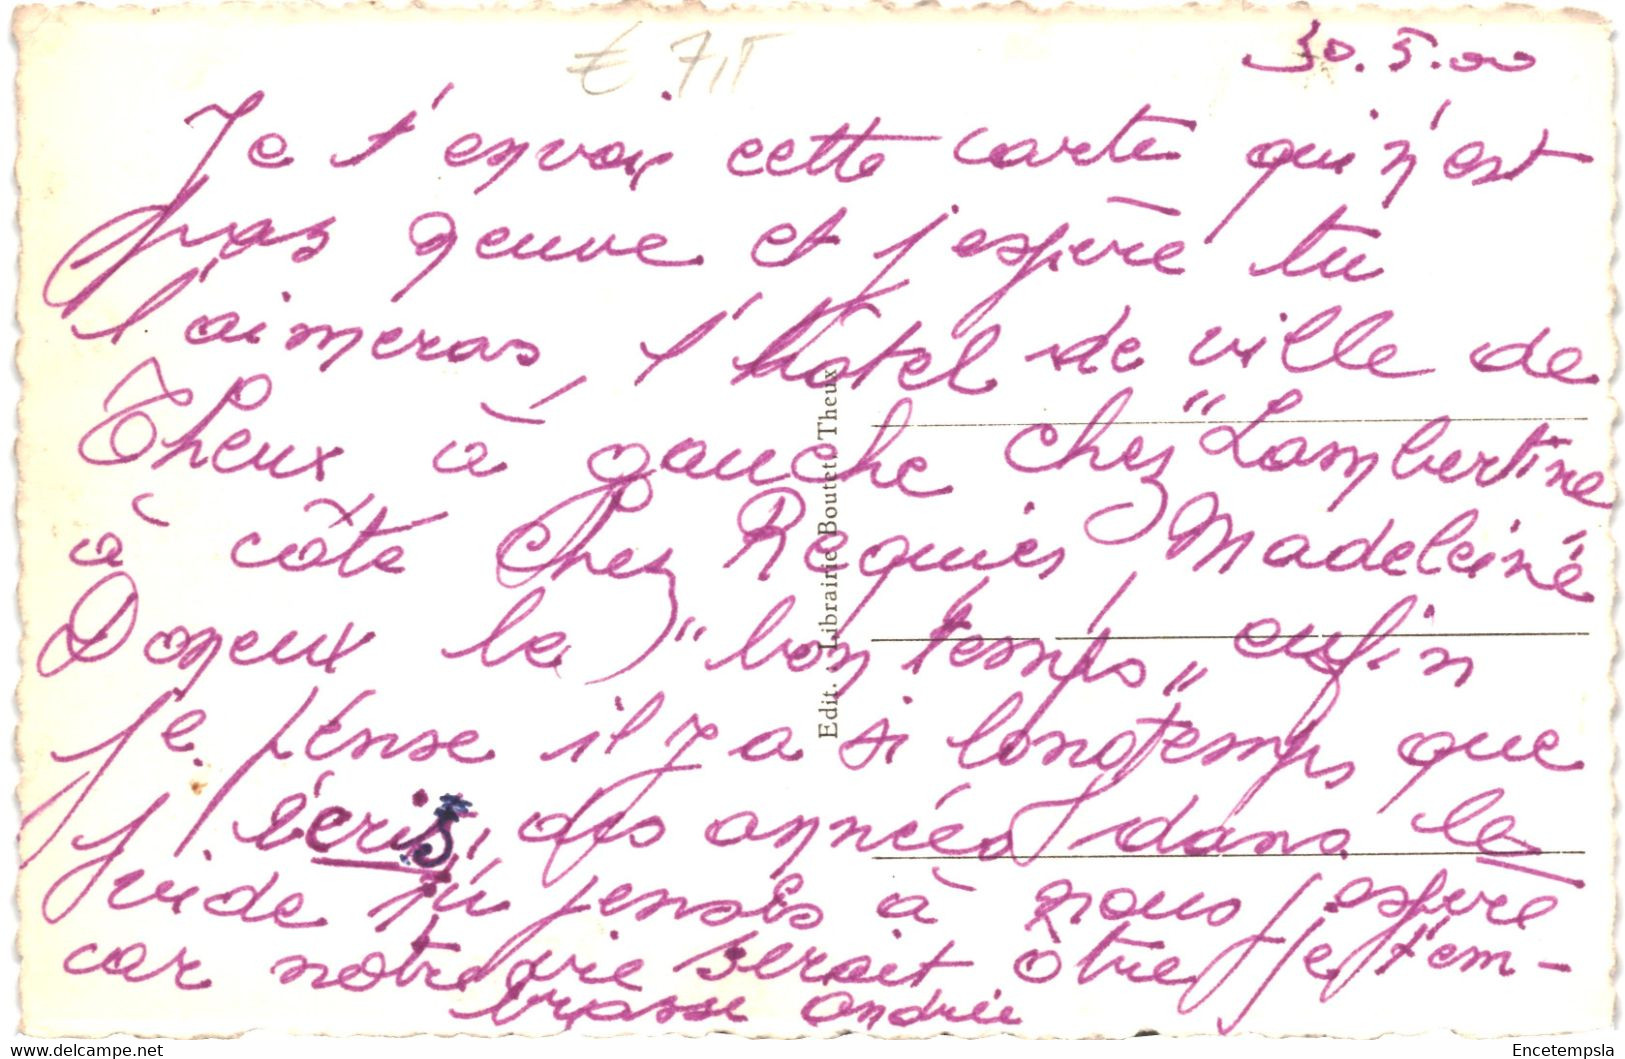 € 7,5
30.5.00
Je t'envoi cette carte qui n'est
pas neuve et j'espère tu
l'aimeras, l'hotel de ville de
Theux à gauche chez "Lambertine
à côté chez Requier Madeleine"
Doneux le "bon temps" enfin
je pense il y a si longtemps que
j'écris, des années dans le
vide tu penses à nous j'espère
car notre vie serait ôtre je t'em-
brasse Andrée
Edit. Librairie Boutet, Theux
Encetempsla.delcampe.net